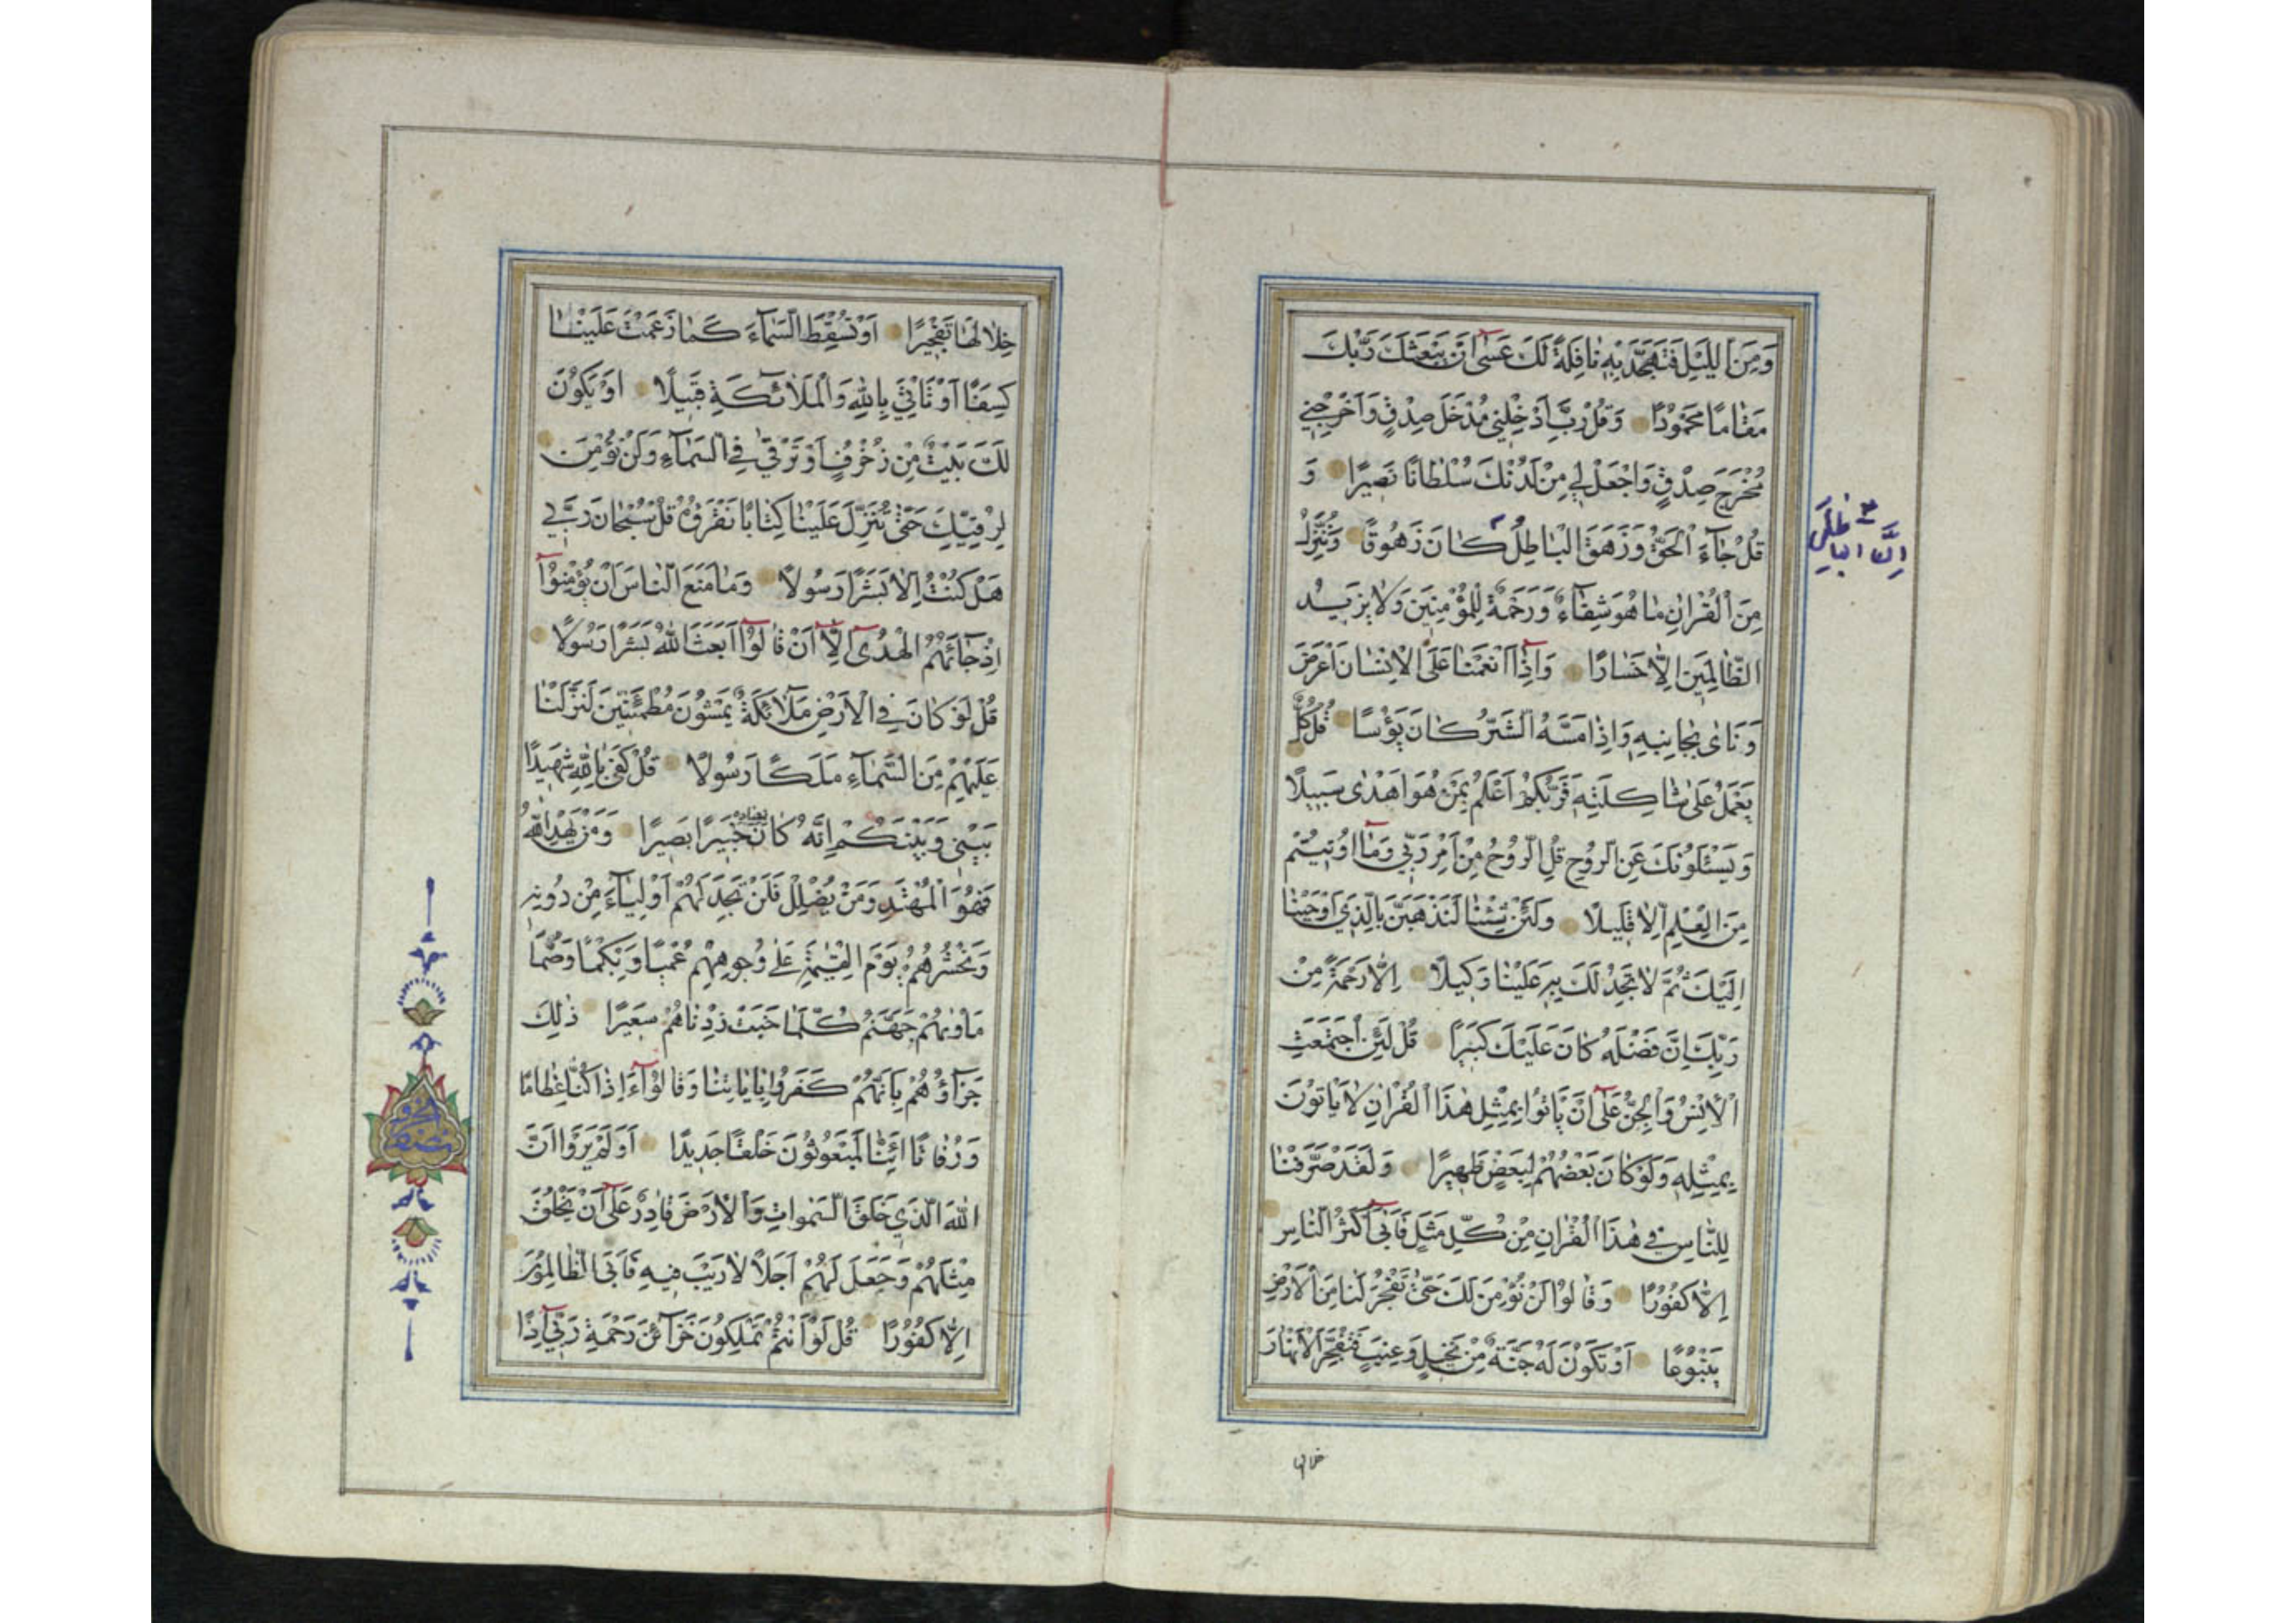 وَمِنَ اللَّيْلِ فَتَهَجَّدْ بِهِ نَافِلَةً لَكَ عَسٰٓى اَنْ يَبْعَثَكَ رَبُّكَ
مَقَامًا مَحْمُودًا وَقُلْ رَبِّ اَدْخِلْنِي مُدْخَلَ صِدْقٍ وَاَخْرِجْنِي
مُخْرَجَ صِدْقٍ وَاجْعَلْ لِي مِنْ لَدُنْكَ سُلْطَانًا نَصِيرًا وَ
قُلْ جَآءَ الْحَقُّ وَزَهَقَ الْبَاطِلُ كَانَ زَهُوقًا وَنُنَزِّلُ
اِنَّ الباطِلَ
مِنَ الْقُرْاٰنِ مَا هُوَ شِفَآءٌ وَرَحْمَةٌ لِلْمُؤْمِنِينَ وَلَا يَزِيدُ
الظَّالِمِينَ اِلَّا خَسَارًا وَاِذَآ اَنْعَمْنَا عَلَى الْاِنْسَانِ اَعْرَضَ
وَنَاٰى بِجَانِبِهِ وَاِذَا مَسَّهُ الشَّرُّ كَانَ يَؤُسًا قُلْ كُلٌّ
يَعْمَلُ عَلٰى شَاكِلَتِهِ فَرَبُّكُمْ اَعْلَمُ بِمَنْ هُوَ اَهْدٰى سَبِيلًا
وَيَسْئَلُونَكَ عَنِ الرُّوحِ قُلِ الرُّوحُ مِنْ اَمْرِ رَبِّي وَمَآ اُوتِيتُمْ
مِنَ الْعِلْمِ اِلَّا قَلِيلًا وَلَئِنْ شِئْنَا لَنَذْهَبَنَّ بِالَّذِي اَوْحَيْنَا
اِلَيْكَ ثُمَّ لَا تَجِدُ لَكَ بِهِ عَلَيْنَا وَكِيلًا اِلَّا رَحْمَةً مِنْ
رَبِّكَ اِنَّ فَضْلَهُ كَانَ عَلَيْكَ كَبِيرًا قُلْ لَئِنِ اجْتَمَعَتِ
الْاِنْسُ وَالْجِنُّ عَلٰٓى اَنْ يَاْتُوا بِمِثْلِ هٰذَا الْقُرْاٰنِ لَا يَاْتُونَ
بِمِثْلِهِ وَلَوْ كَانَ بَعْضُهُمْ لِبَعْضٍ ظَهِيرًا وَلَقَدْ صَرَّفْنَا
لِلنَّاسِ فِي هٰذَا الْقُرْاٰنِ مِنْ كُلِّ مَثَلٍ فَاَبٰٓى اَكْثَرُ النَّاسِ
اِلَّا كُفُورًا وَقَالُوا لَنْ نُؤْمِنَ لَكَ حَتّٰى تَفْجُرَ لَنَا مِنَ الْاَرْضِ
يَنْبُوعًا اَوْ تَكُونَ لَهُ جَنَّةٌ مِنْ نَخِيلٍ وَعِنَبٍ فَتُفَجِّرَ الْاَنْهَارَ
خلالها
خِلَالَهَا تَفْجِيرًا اَوْ تُسْقِطَ السَّمَآءَ كَمَا زَعَمْتَ عَلَيْنَا
كِسَفًا اَوْ تَاْتِيَ بِاللّٰهِ وَالْمَلَآئِكَةِ قَبِيلًا اَوْ يَكُونَ
لَكَ بَيْتٌ مِنْ زُخْرُفٍ اَوْ تَرْقٰى فِي السَّمَآءِ وَلَنْ نُؤْمِنَ
لِرُقِيِّكَ حَتّٰى تُنَزِّلَ عَلَيْنَا كِتَابًا نَقْرَؤُهُ قُلْ سُبْحَانَ رَبِّي
هَلْ كُنْتُ اِلَّا بَشَرًا رَسُولًا وَمَا مَنَعَ النَّاسَ اَنْ يُؤْمِنُوٓا
اِذْ جَآءَهُمُ الْهُدٰٓى اِلَّآ اَنْ قَالُوٓا اَبَعَثَ اللّٰهُ بَشَرًا رَسُولًا
قُلْ لَوْ كَانَ فِي الْاَرْضِ مَلَآئِكَةٌ يَمْشُونَ مُطْمَئِنِّينَ لَنَزَّلْنَا
عَلَيْهِمْ مِنَ السَّمَآءِ مَلَكًا رَسُولًا قُلْ كَفٰى بِاللّٰهِ شَهِيدًا
بَيْنِي وَبَيْنَكُمْ اِنَّهُ كَانَ بعباده خَبِيرًا بَصِيرًا وَمَنْ يَهْدِ اللّٰهُ
فَهُوَ الْمُهْتَدِ وَمَنْ يُضْلِلْ فَلَنْ تَجِدَ لَهُمْ اَوْلِيَآءَ مِنْ دُونِهِ
وَنَحْشُرُهُمْ يَوْمَ الْقِيٰمَةِ عَلٰى وُجُوهِهِمْ عُمْيًا وَبُكْمًا وَصُمًّا
مَاْوٰيهُمْ جَهَنَّمُ كُلَّمَا خَبَتْ زِدْنَاهُمْ سَعِيرًا ذٰلِكَ
جَزَآؤُهُمْ بِاَنَّهُمْ كَفَرُوا بِاٰيَاتِنَا وَقَالُوٓا ءَاِذَا كُنَّا عِظَامًا
وَرُفَاتًا اَئِنَّا لَمَبْعُوثُونَ خَلْقًا جَدِيدًا اَوَلَمْ يَرَوْا اَنَّ
اللّٰهَ الَّذِي خَلَقَ السَّمٰوَاتِ وَالْاَرْضَ قَادِرٌ عَلٰٓى اَنْ يَخْلُقَ
مِثْلَهُمْ وَجَعَلَ لَهُمْ اَجَلًا لَا رَيْبَ فِيهِ فَاَبَى الظَّالِمُونَ
اِلَّا كُفُورًا قُلْ لَوْ اَنْتُمْ تَمْلِكُونَ خَزَآئِنَ رَحْمَةِ رَبِّيٓ اِذًا